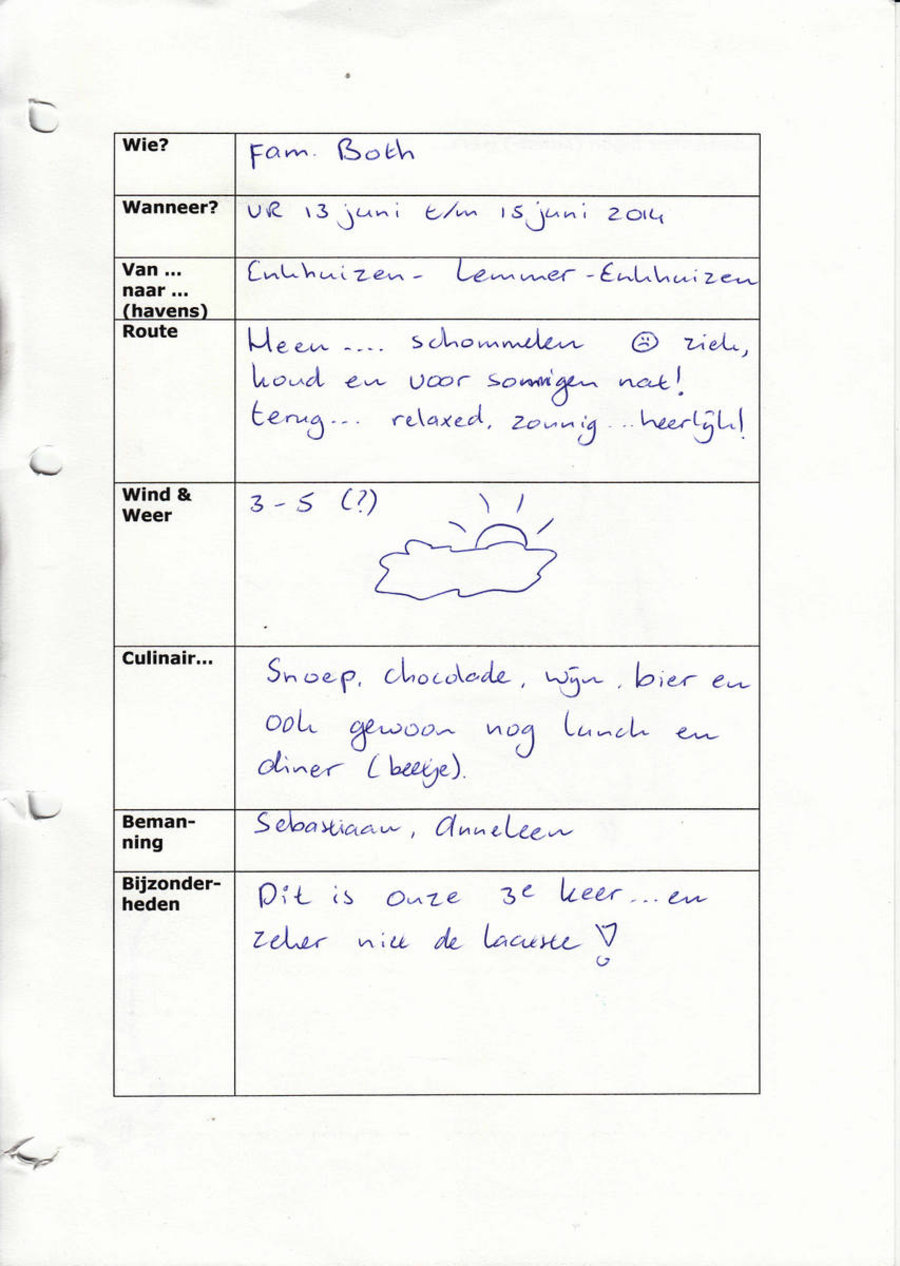 Wie?
Fam. Both
Wanneer?
VR 13 juni t/m 15 juni 2014
Van ...
naar ...
(havens)
Enkhuizen - Lemmer - Enkhuizen
Route
Heen .... schommelen ☹ ziek,
koud en voor sommigen nat!
terug... relaxed, zonnig ... heerlijk!
Wind &
Weer
3 - 5 (?)
Culinair...
Snoep, chocolade, wijn, bier en
ook gewoon nog lunch en
diner (beetje).
Beman-
ning
Sebastiaan, Anneleen
Bijzonder-
heden
Dit is onze 3e keer ... en
zeker niet de laatste!